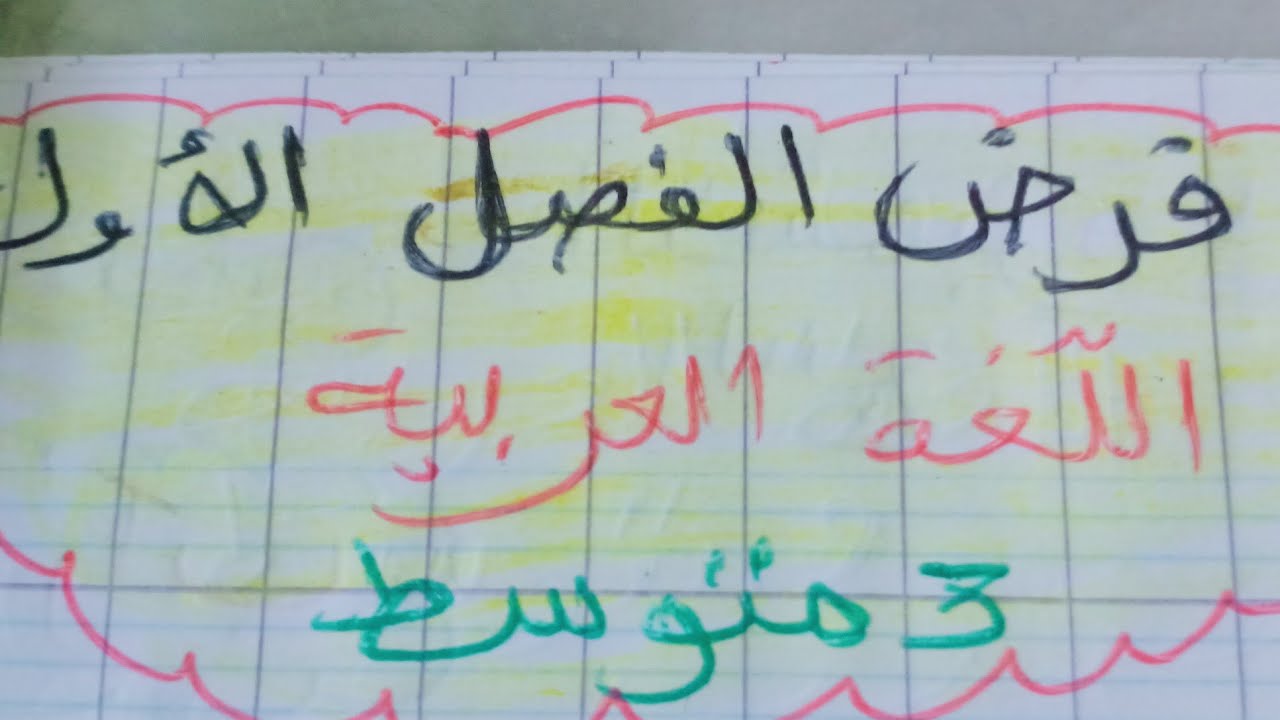 فرض الفصل الأول
اللّغة العربية
3 متوسط